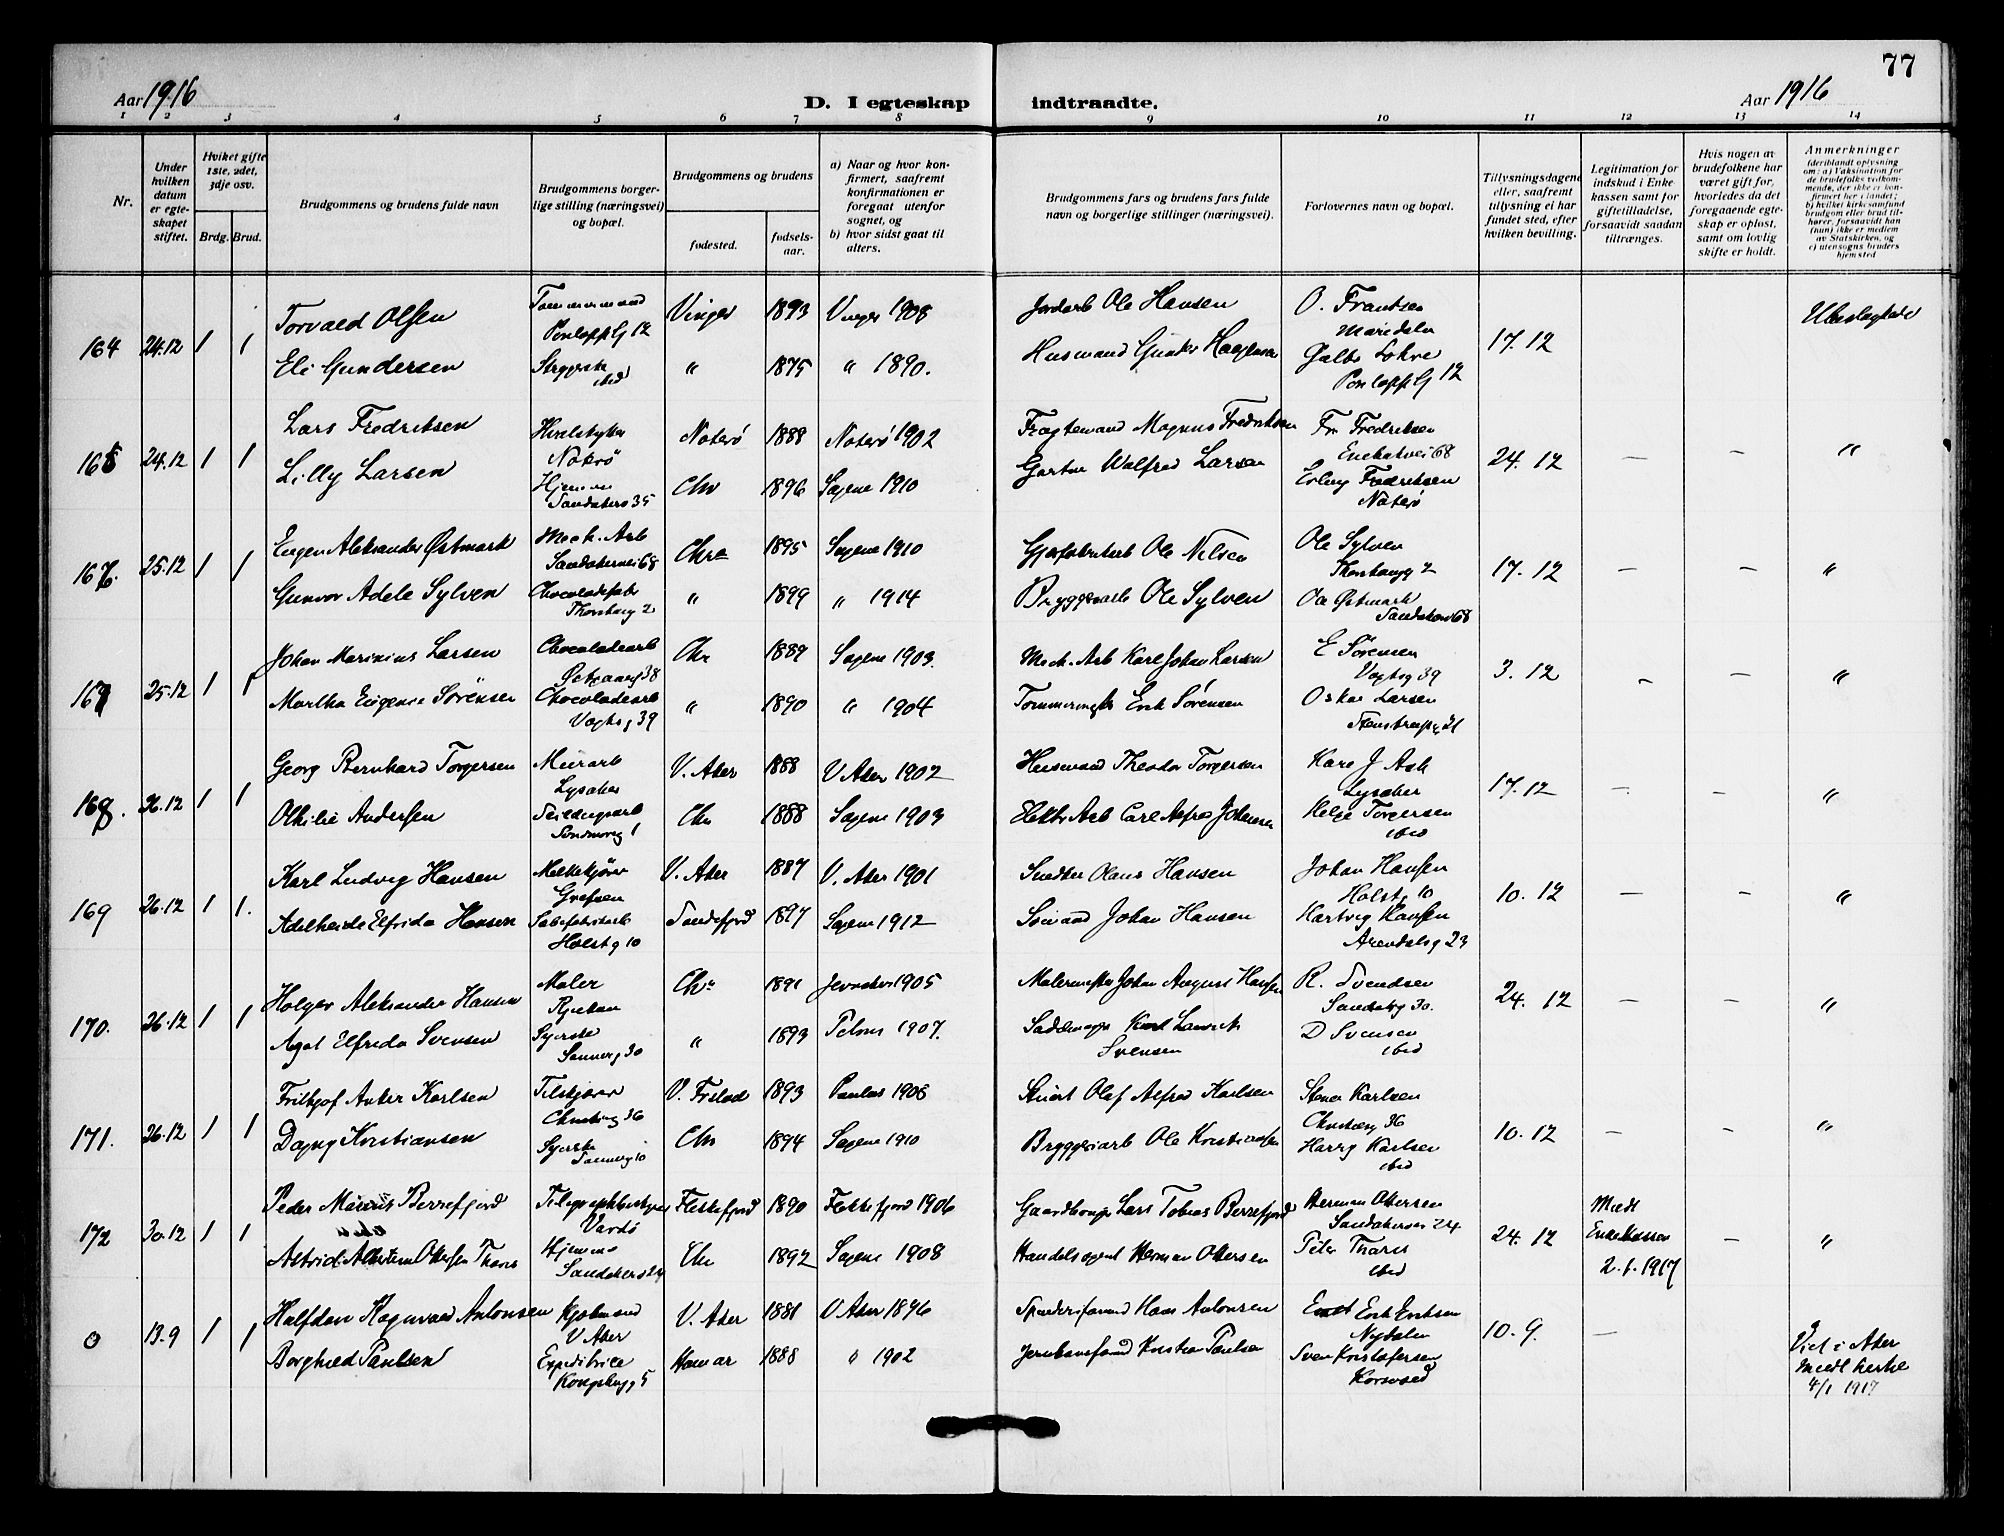 77
Aar 1916
D. I egteskap indtraadte.
Aar 1916
1 2 3 4 5 6 7 8 9 10 11 12 13 14
Nr.
Under hvilken datum er egteskapet stiftet.
Hvilket gifte 1ste, 2det, 3dje osv.
Brdg. Brud.
Brudgommens og brudens fulde navn
Brudgommens borgerlige stilling (næringsvei) og bopæl.
Brudgommens og brudens
fødested.
fødselsaar.
a) Naar og hvor konfirmert, saafremt konfirmationen er foregaat utenfor sognet, og
b) hvor sidst gaat til alters.
Brudgommens fars og brudens fars fulde navn og borgerlige stillinger (næringsvei).
Forlovernes navn og bopæl.
Tillysningsdagene eller, saafremt tillysning ei har fundet sted, efter hvilken bevilling.
Legitimation for indskud i Enkekassen samt for giftetilladelse, forsaavidt saadan tiltrænges.
Hvis nogen av brudefolkene har været gift før, hvorledes da det foregaaende egteskap er opløst, samt om lovlig skifte er holdt.
Anmerkninger (deriblandt oplysning om: a) Vaksination for de brudefolks vedkommende, der ikke er konfirmert her i landet; b) hvilket kirkesamfund brudgom eller brud tilhører, forsaavidt han (hun) ikke er medlem av Statskirken, og c) utensogns bruders hjemsted
164 24.12 1 1
Torvald Olsen
Vinger 1893 Vinger 1908
Jordarb Ole Hansen
O. Frantsen
Maridalen
17.12
Ubeslegtede
Eli Gundersen
Strygerske ibid
" 1875 " 1890.
Husmand Gunder Haagensen
165 24.12 1 1
Lars Fredriksen
Nøterø
Nøterø 1888 Nøterø 1902
Magnus Fredriksen
Fr Fredriksen
24.12 — — "
Lilly Larsen
Hjemme
Sandakerv 35
Chr 1896 Sagene 1910
Gartner Walfred Larsen
Erling Fredriksen
Nøterø
166. 25.12 1 1
Eugen Aleksander Østmark
Mek. Arb
Sandakervei 68
Chra 1895 Sagene 1910
Ole Nilsen
Ole Sylven
Thorsbergg 2
17.12 — — "
Gunvor Adele Sylven
Chocoladefabr
Thorsberg 2
" 1899 " 1914
Bryggeriarb Ole Sylven
Ole Østmark
Sandakerv 68
167 25.12 1 1
Johan Marinius Larsen
Chocoladearb
Chr 1889 Sagene 1903.
Mek. Arb Karl Johan Larsen
E Sörensen
Vogtsg 39
3.12 — — "
Martha Eugenie Sörensen
Chocoladearb
Vogtsg 39
" 1890 " 1904
Erik Sörensen
Oskar Larsen
168. 26.12 1 1
Georg Bernhard Torgersen
Murarb
Lysaker
V. Aker 1888 V Aker 1902
Husmand Theodor Torgersen
Kare J Ask
Lysaker
17.12 — — "
Othilie Andersen
Chr 1888 Sagene 1903
Elektr Arb Carl Alfred Johansen
Helge Torgersen
ibid
169 26.12 1 1.
Karl Ludvig Hansen
Melkekjører
Grefsen
V. Aker 1887 V. Aker 1901
Snedker Olaus Hansen
Johan Hansen
Holstg 10
10.12 — — "
Adelheide Elfrida Hansen
Holstg 10
Sandefjord 1897 Sagene 1912
Sømand Johan Hansen
Hartvig Hansen
Arendalsg 23
170. 26.12 1 1
Holger Aleksander Hansen
Maler
Rjukan
Chr 1891 1905
Malermester Johan August Hansen
R. Svendsen
24.12 — — "
Agot Elfrida Svensen
Syerske
Sannerg 30
" 1893 Petrus 1907.
Svensen
D Svensen
ibid
171. 26.12 1 1
Frithjof Anker Karlsen
V. Frelad 1893 Paulus 1908
Olaf Alfred Karlsen
Karlsen
10.12 — — "
Dagny Kristiansen
Syerske
Sannerg 10
Chr 1894 Sagene 1910
Bryggeriarb Ole Kristiansen
Harry Karlsen
ibid
172 30.12 1 1
Peder Marius Berrefjord
Vardö
Flekkefjord 1890 Flekkefjord 1906
Gaardbruger Lars Tobias Berrefjord
Herman Ottersen
Sandakervei 24
24.12
Medl
Enkekassen
2.1.1917
— "
Hjemme
Sandakerv 24
Chr 1892 Sagene 1908
Handelsagent Herman Ottersen
Peter
ibid
0 13.9 1 1
Halfdan Ragnvald Antonsen
V Aker
V. Aker 1881 V Aker 1896
Hans Antonsen
Erik Eriksen
Nydalen
10.9. —
Viet i Aker
Medl kirke
4/1 1917
Borghild Paulsen
Expeditrice
Hamar 1888 " 1902
Kristian Paulsen
Sven Kristofersen
Korsvold